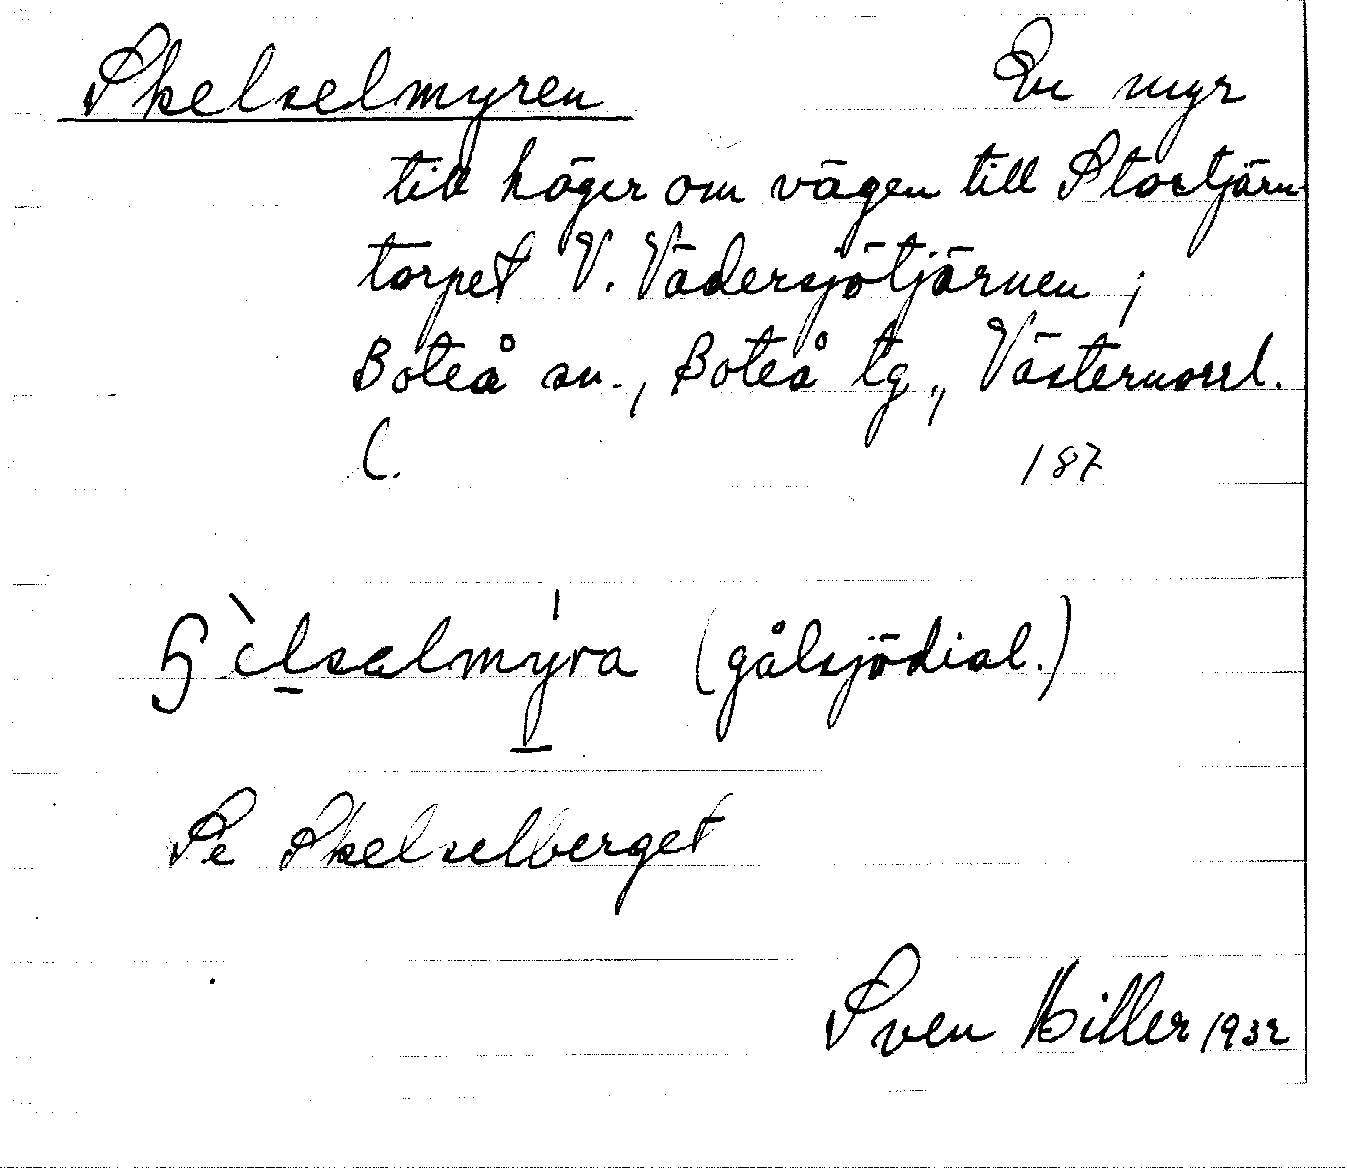 Skelselmyren En myr
till höger om vägen till Stortjärn-
torpet V. Vädersjötjärnen;
Boteå sn., Boteå tg., Västernorrl.
l. 187
(gålsjödial.)
Se Skelselberget
Sven Hiller 1932